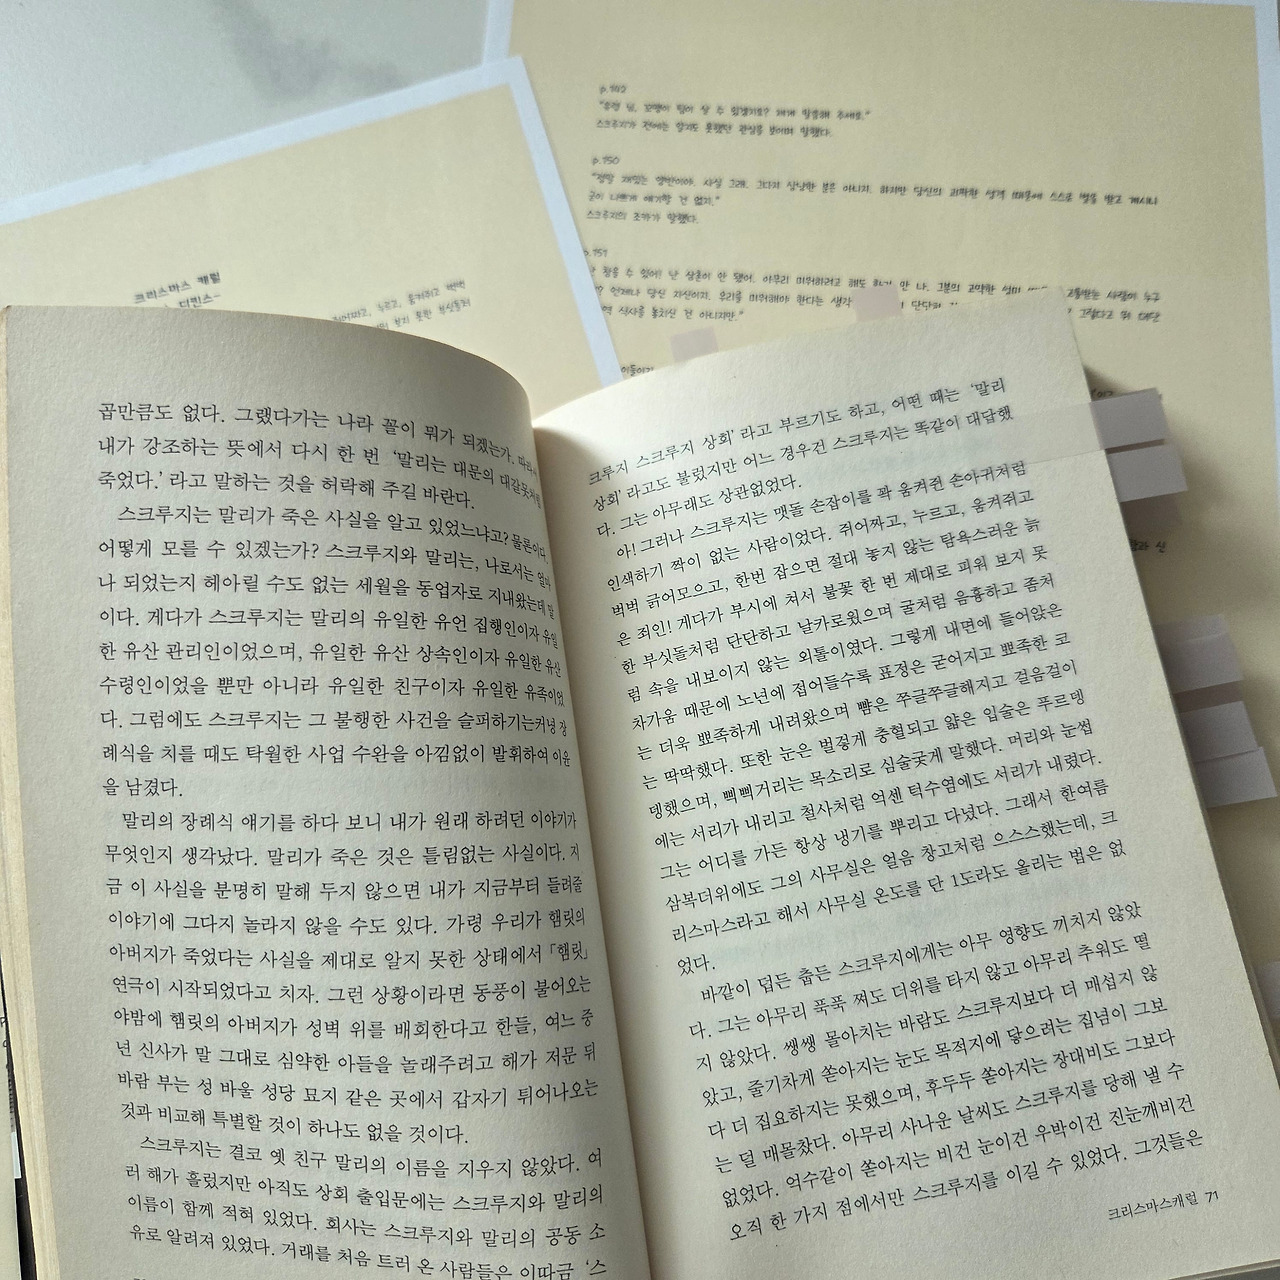 p.142
스크루지가 전에는 알지도 못했던 관심을 보이며 말했다.
p.150
"정말 재밌는 양반이야. 사실 그래. 그다지 상냥한 분은 아니지. 하지만 당신의 괴팍한 성격 때문에 스스로 벌을 받고 계시니
굳이 나쁘게 얘기할 건 없지."
스크루지의 조카가 말했다.
p.151
참을 수 있어? 난 삼촌이 안 됐어. 아무리 미워하려고 해도 화가 안 나. 그분의 고약한 심보 고통받는 사람이 누구
? 언제나 당신 자신이지. 우리를 미워해야 한다는 생각 단단히 그렇다고 뭐 대단
역 식사를 놓치신 건 아니지만."
크리스마스 캐럴
디킨스-
어짜고, 누르고, 움켜쥐고 벅벅
보지 못한 부싯돌처
곱만큼도 없다. 그랬다가는 나라 꼴이 뭐가 되겠는가. 따라서
내가 강조하는 뜻에서 다시 한 번 '말리는 대문의 대갈못처럼
죽었다.' 라고 말하는 것을 허락해 주길 바란다.
스크루지는 말리가 죽은 사실을 알고 있었느냐고? 물론이다.
어떻게 모를 수 있겠는가? 스크루지와 말리는, 나로서는 얼마
나 되었는지 헤아릴 수도 없는 세월을 동업자로 지내왔는데 말
이다. 게다가 스크루지는 말리의 유일한 유언 집행인이자 유일
한 유산 관리인이었으며, 유일한 유산 상속인이자 유일한 유산
수령인이었을 뿐만 아니라 유일한 친구이자 유일한 유족이었
다. 그럼에도 스크루지는 그 불행한 사건을 슬퍼하기는커녕 장
례식을 치를 때도 탁월한 사업 수완을 아낌없이 발휘하여 이윤
을 남겼다.
말리의 장례식 얘기를 하다 보니 내가 원래 하려던 이야기가
무엇인지 생각났다. 말리가 죽은 것은 틀림없는 사실이다. 지
금 이 사실을 분명히 말해 두지 않으면 내가 지금부터 들려줄
이야기에 그다지 놀라지 않을 수도 있다. 가령 우리가 햄릿의
아버지가 죽었다는 사실을 제대로 알지 못한 상태에서 「햄릿」
연극이 시작되었다고 치자. 그런 상황이라면 동풍이 불어오는
야밤에 햄릿의 아버지가 성벽 위를 배회한다고 한들, 여느 중
년 신사가 말 그대로 심약한 아들을 놀래주려고 해가 저문 뒤
바람 부는 성 바울 성당 묘지 같은 곳에서 갑자기 튀어나오는
것과 비교해 특별할 것이 하나도 없을 것이다.
스크루지는 결코 옛 친구 말리의 이름을 지우지 않았다. 여
러 해가 흘렀지만 아직도 상회 출입문에는 스크루지와 말리의
이름이 함께 적혀 있었다. 회사는 스크루지와 말리의 공동 소
유로 알려져 있었다. 거래를 처음 트러 온 사람들은 이따금 '스
크루지 스크루지 상회' 라고 부르기도 하고, 어떤 때는 '말리
상회' 라고도 불렀지만 어느 경우건 스크루지는 똑같이 대답했
다. 그는 아무래도 상관없었다.
아! 그러나 스크루지는 맷돌 손잡이를 꽉 움켜쥔 손아귀처럼
인색하기 짝이 없는 사람이었다. 쥐어짜고, 누르고, 움켜쥐고
벅벅 긁어모으고, 한번 잡으면 절대 놓지 않는 탐욕스러운 늙
은 죄인! 게다가 부시에 쳐서 불꽃 한 번 제대로 피워 보지 못
한 부싯돌처럼 단단하고 날카로웠으며 굴처럼 음흉하고 좀처
럼 속을 내보이지 않는 외톨이였다. 그렇게 내면에 들어앉은
차가움 때문에 노년에 접어들수록 표정은 굳어지고 뾰족한 코
는 더욱 뾰족하게 내려왔으며 뺨은 쭈글쭈글해지고 걸음걸이
는 딱딱했다. 또한 눈은 벌겋게 충혈되고 얇은 입술은 푸르뎅
뎅했으며, 삑삑거리는 목소리로 심술궂게 말했다. 머리와 눈썹
에는 서리가 내리고 철사처럼 억센 턱수염에도 서리가 내렸다.
그는 어디를 가든 항상 냉기를 뿌리고 다녔다. 그래서 한여름
삼복더위에도 그의 사무실은 얼음 창고처럼 으스스했는데, 크
리스마스라고 해서 사무실 온도를 단 1도라도 올리는 법은 없
었다.
바깥이 덥든 춥든 스크루지에게는 아무 영향도 끼치지 않았
다. 그는 아무리 푹푹 쪄도 더위를 타지 않고 아무리 추워도 떨
지 않았다. 쌩쌩 몰아치는 바람도 스크루지보다 더 매섭지 않
았고, 줄기차게 쏟아지는 눈도 목적지에 닿으려는 집념이 그보
다 더 집요하지는 못했으며, 후두두 쏟아지는 장대비도 그보다
는 덜 매몰찼다. 아무리 사나운 날씨도 스크루지를 당해 낼 수
없었다. 억수같이 쏟아지는 비건 눈이건 우박이건 진눈깨비건
오직 한 가지 점에서만 스크루지를 이길 수 있었다. 그것들은
크리스마스캐럴 71